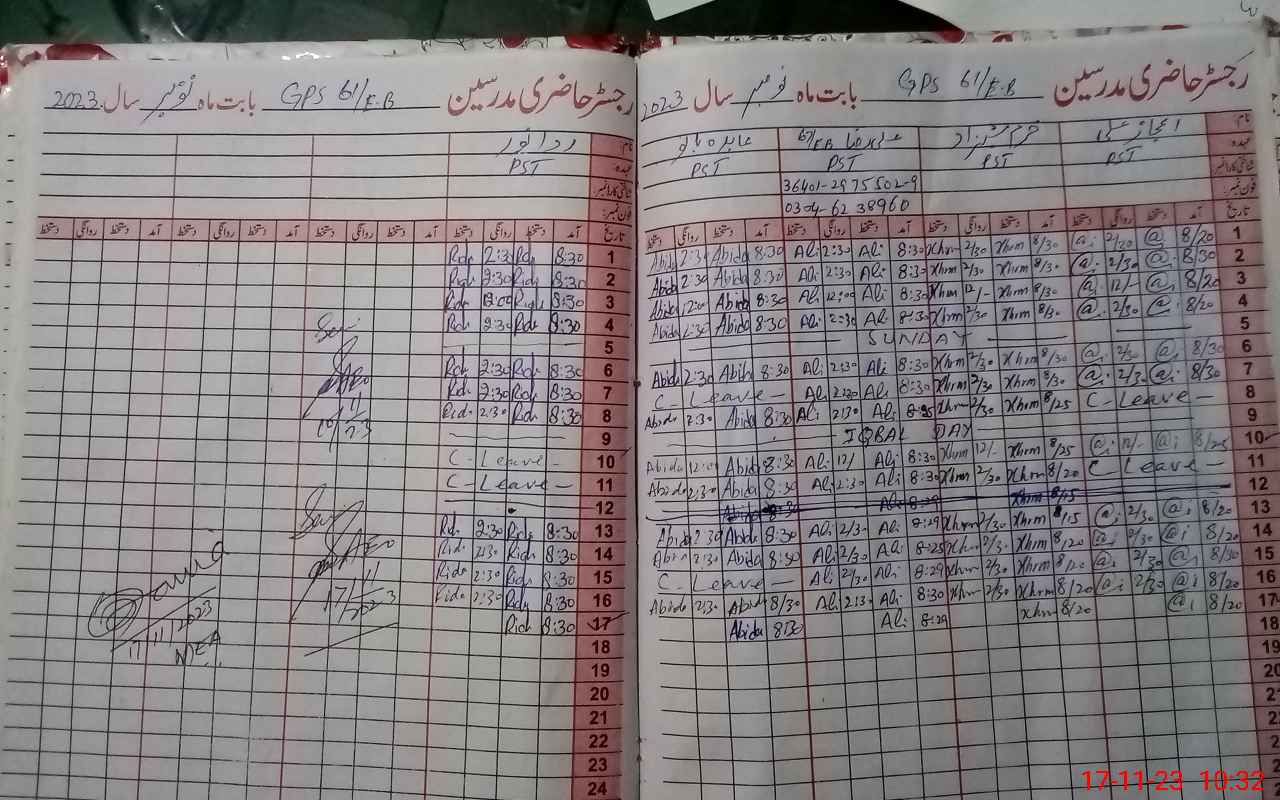 رجسٹر حاضری مدرسین GPS 61/E.B بابت ماہ نومبر سال 2023
نام
عہدہ PST PST PST PST
61/EB
شناختی کارڈ نمبر 36401-2975502-9
فون نمبر: 0304-6238960
تاریخ آمد دستخط روانگی دستخط آمد دستخط روانگی دستخط آمد دستخط روانگی دستخط آمد دستخط روانگی دستخط
1 8/20 @i 2/30 @i 8/30 Khrm 2/30 Khrm 8:30 Ali 2:30 Ali 8:30 Abida 2:30 Abida
2 8/30 @i 2/30 @i 8/30 Khrm 2/30 Khrm 8:30 Ali 2:30 Ali 8:30 Abida 2:30 Abida
3 8/20 @i 12/- @i 8/30 Khrm 12/- Khrm 8:30 Ali 12:00 Ali 8:30 Abida 12:00 Abida
4 8/20 @i 2/30 @i 8/30 Khrm 2/30 Khrm 8:30 Ali 2:30 Ali 8:30 Abida 2:30 Abida
5 SUNDAY
6 8/30 @i 2/30 @i 8/30 Khrm 2/30 Khrm 8:30 Ali 2:30 Ali 8:30 Abida 2:30 Abida
7 8/30 @i 2/30 @i 8/30 Khrm 2/30 Khrm 8:30 Ali 2:30 Ali C-Leave
8 C-Leave 8/25 Khrm 2/30 Khrm 8:25 Ali 2:30 Ali 8:30 Abida 2:30 Abida
9 IQBAL DAY
10 8/25 @i 12/- @i 8/25 Khrm 12/- Khrm 8:30 Ali 12/ Ali 8:30 Abida 12:00 Abida
11 C-Leave 8/20 Khrm 2/30 Khrm 8:30 Ali 2:30 Ali 8:30 Abida 2:30 Abida
12
13 8/20 @i 2/30 @i 8/15 Khrm 2/30 Khrm 8:29 Ali 2/30 Ali 8:30 Abida 2:30 Abida
14 8/20 @i 2/30 @i 8/20 Khrm 2/30 Khrm 8:25 Ali 2/30 Ali 8:30 Abida 2:30 Abida
15 8/30 @i 2/30 @i 8/20 Khrm 2/30 Khrm 8:29 Ali 2/30 Ali C-Leave
16 8/20 @i 2/30 @i 8/20 Khrm 2/30 Khrm 8:30 Ali 2:30 Ali 8/30 Abida 2:30 Abida
17 8/20 @i 8/20 Khrm 8:29 Ali 8:30 Abida
18
19
20
21
22
23
رجسٹر حاضری مدرسین GPS 61/E.B بابت ماہ نومبر سال 2023
نام
عہدہ PST
شناختی کارڈ نمبر
فون نمبر:
تاریخ آمد دستخط روانگی دستخط آمد دستخط روانگی دستخط آمد دستخط روانگی دستخط آمد دستخط روانگی دستخط
1 8:30 Rida 2:30 Rida
2 8:30 Rida 2:30 Rida
3 8:30 Rida 12:00 Rida
4 8:30 Rida 2:30 Rida
5
6 8:30 Rida 2:30 Rida
7 8:30 Rida 2:30 Rida
8 8:30 Rida 2:30 Rida
9
10 C-Leave
11 C-Leave
12
13 8:30 Rida 2:30 Rida
14 8:30 Rida 2:30 Rida
15 8:30 Rida 2:30 Rida
16 8:30 Rida 2:30 Rida
17 8:30 Rida
18
19
20
21
22
23
24
AEO
AEO
17/11/2023
17/11/2023
MEA
17-11-23 10:32